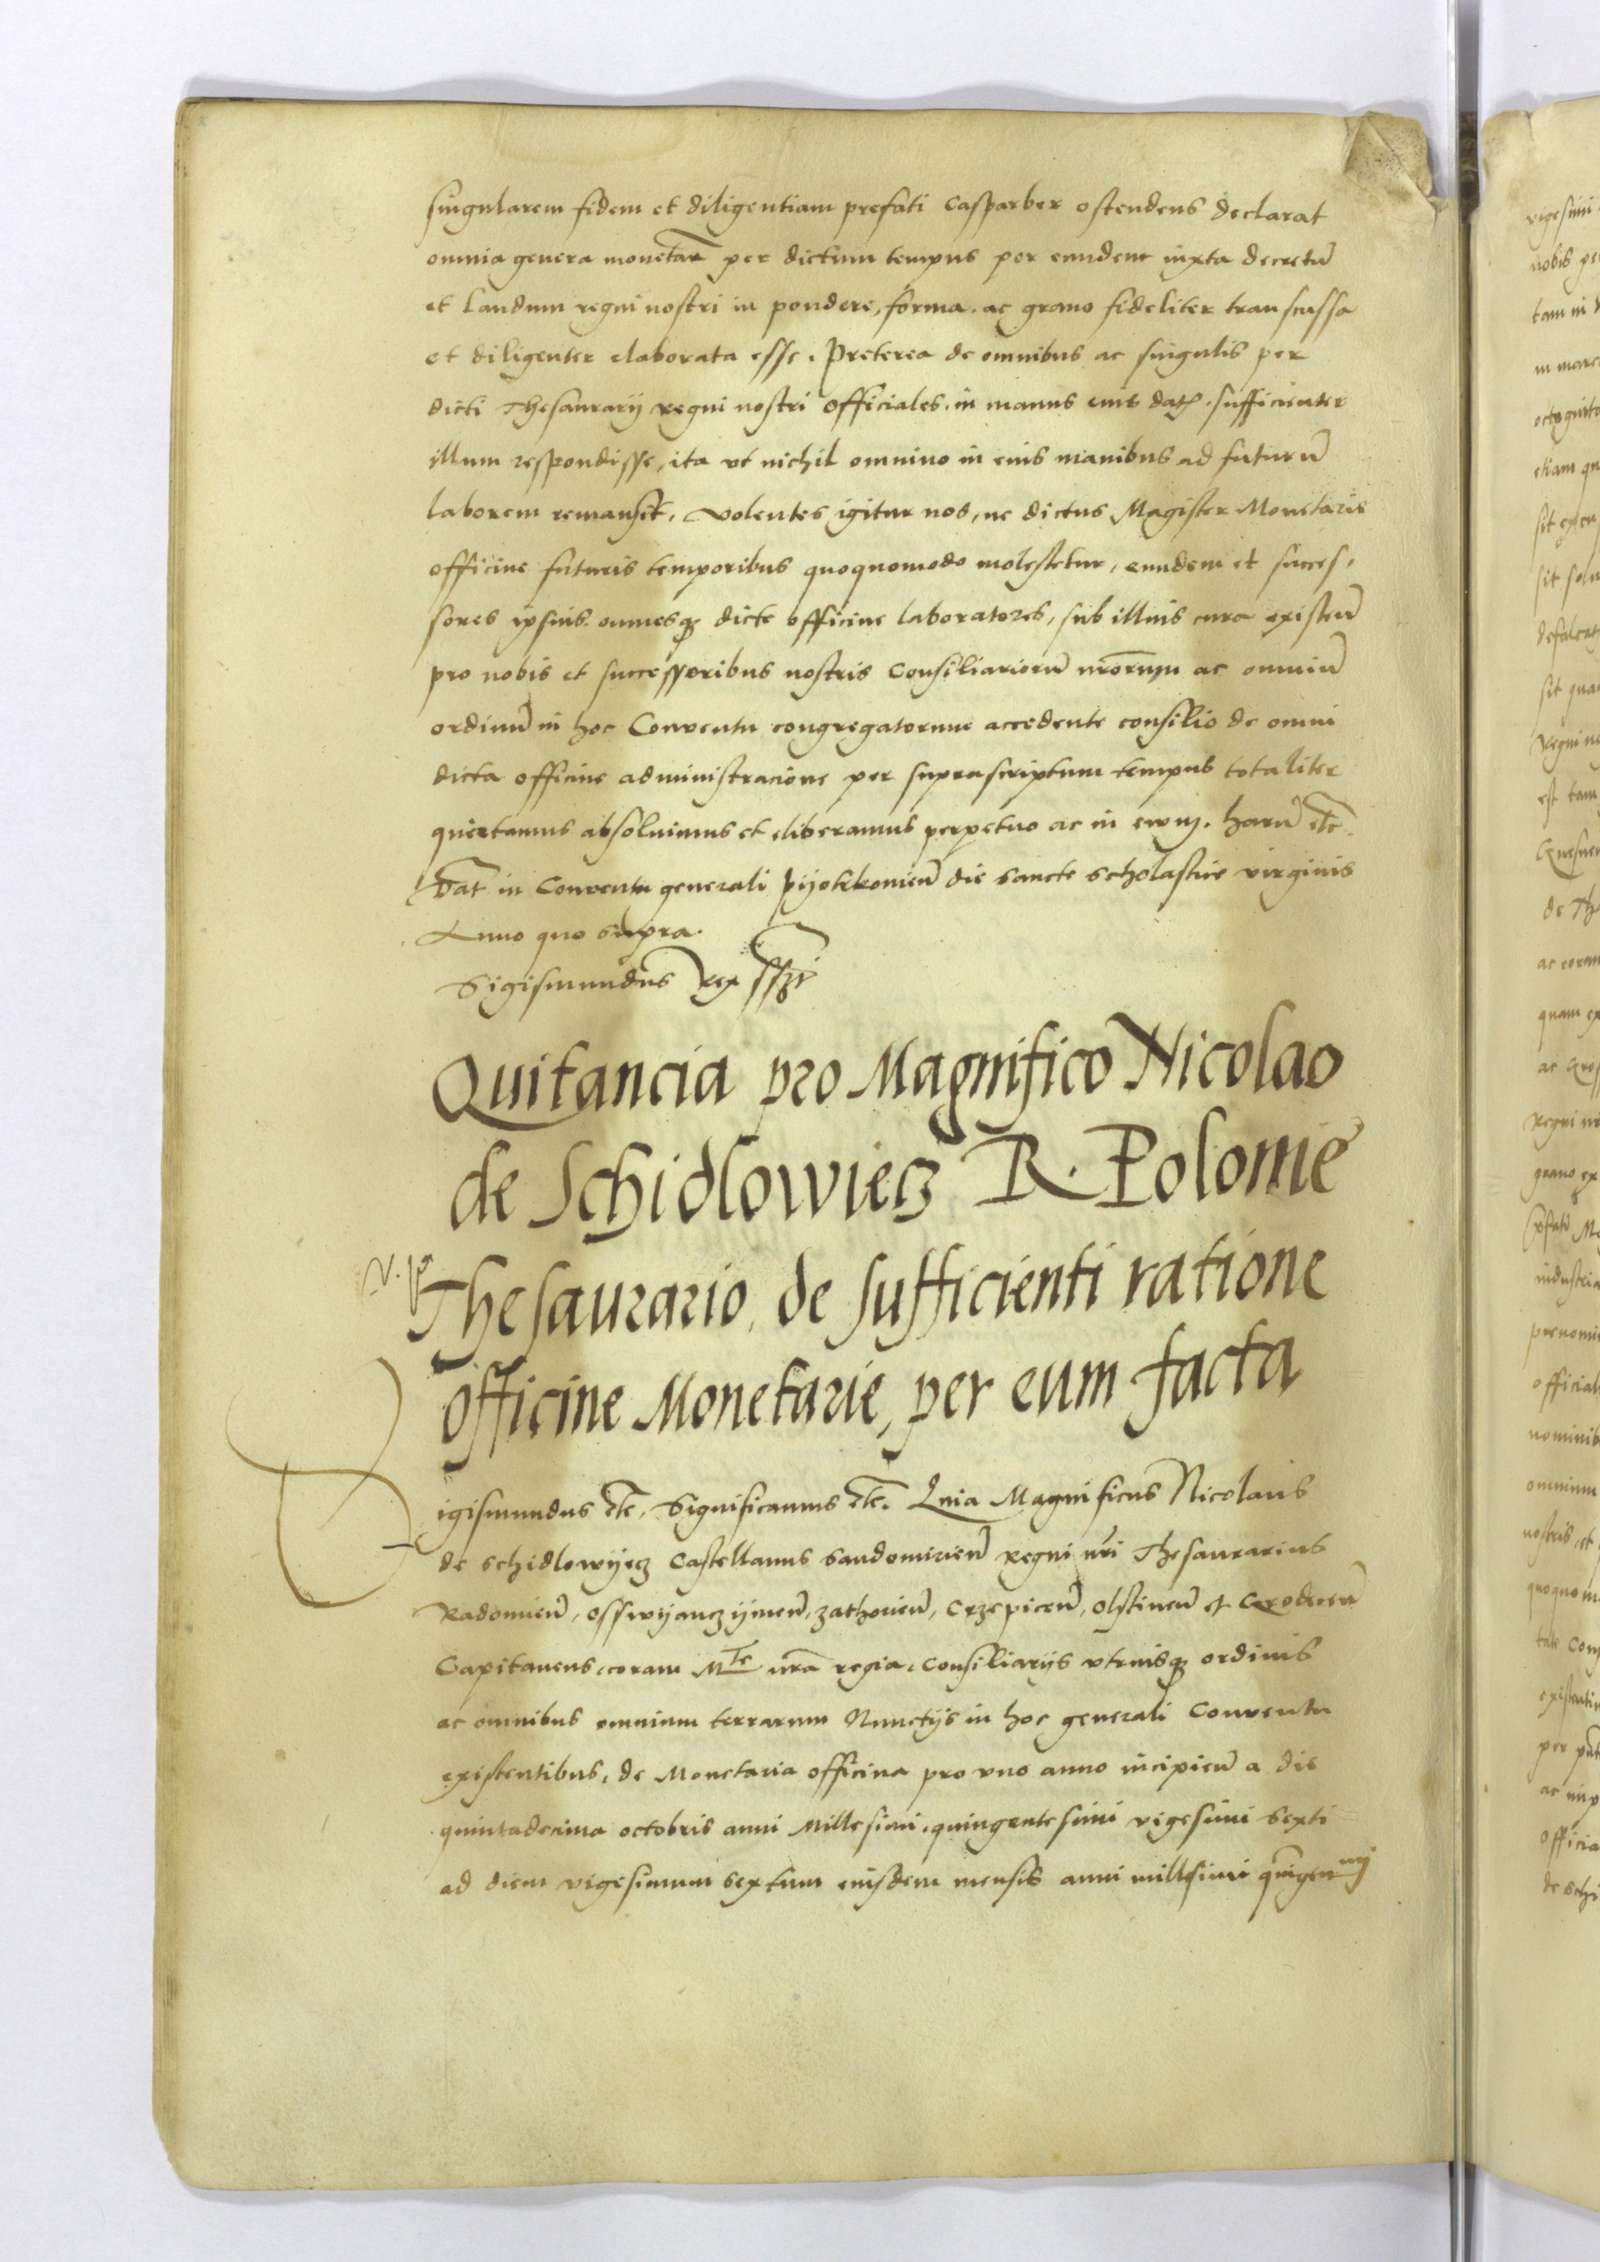 singularem fidem et diligentiam prefati Casparber ostendens declarat
omnia genera monetar̄ per dictum tempus per eundem iuxta decretū
et laudum regni nostri in pondere, forma. ac grano fideliter transcussa
et diligenter elaborata esse. Preterea de omnibus ac singulis per
dicti Thesaurarij regni nostri Officiales. in manus eius dat̄. sufficienter
illum respondisse, ita vt nichil omnino in eius manibus ad futurū
laborem remansit, Volentes igitur nos, ne dictus Magister Monetarie
officine futuris temporibus quoquomodo molestetur, eundem et succes,
sores ipsius. omnesq̨ dicte officine laboratores, sub illius cura existeñ
pro nobis et successoribus nostris Consiliariorū nr̄orum ac omniū
ordinū in hoc Conventu congregatorum accedente consilio de omni
dicta officine administracione per suprascriptum tempus totaliter
quietamus absoluimus et eliberamus perpetuo ac in ewm. harū etc̄.
Dat̄ in Conventu generali Pijotrkovieñ die Sancte Scholastice virginis
Anno quo Supra.
Sigismundus Rex sspt
Quitancia pro Magnifico Nicolao
de Schidlowiecz R. Polonie
Thesaurario, de sufficienti ratione
officine Monetarie, per eum facta
Sigismundus etc̄. Significamus etc̄. Quia Magnificus Nicolaus
de Schidlowijecz Castellanus Sandomirieñ regni nr̄i Thesaurarius
Radomieñ, Osswijanczijmeñ, Zathorieñ, Crzepiceñ, Olstineñ et
Capitaneus, coram Mte nr̄a regia, Consiliarijs vtriusq̨ ordinis
ac omnibus omnium terrarum Nunctijs in hoc generali Conventu
existentibus, de Monetaria officina pro vno anno incipieñ a die
quintadecima octobris anni Millesimi. quingentesimi vigesimi Sexti
ad diem vigesimum Sextum eiusdem mensis anni millesimi